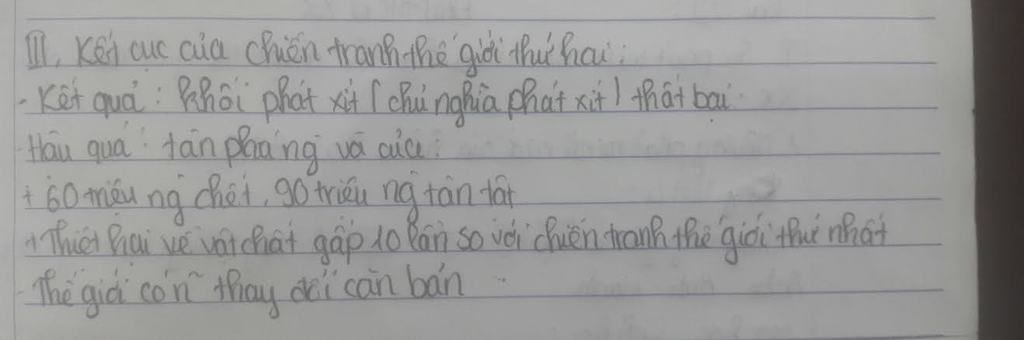 III, Kết cục của chiến tranh thế giới thứ hai:
- Kết quả: Khối phát xít (chủ nghĩa phát xít) thất bại
- Hậu quả: tàn phá nặng và của:
+ 60 triệu ng chết, 90 triệu ng tàn tật
+ Thiệt hại về vật chất gấp 10 lần so với chiến tranh thế giới thứ nhất
- Thế giới có n~ thay đổi căn bản